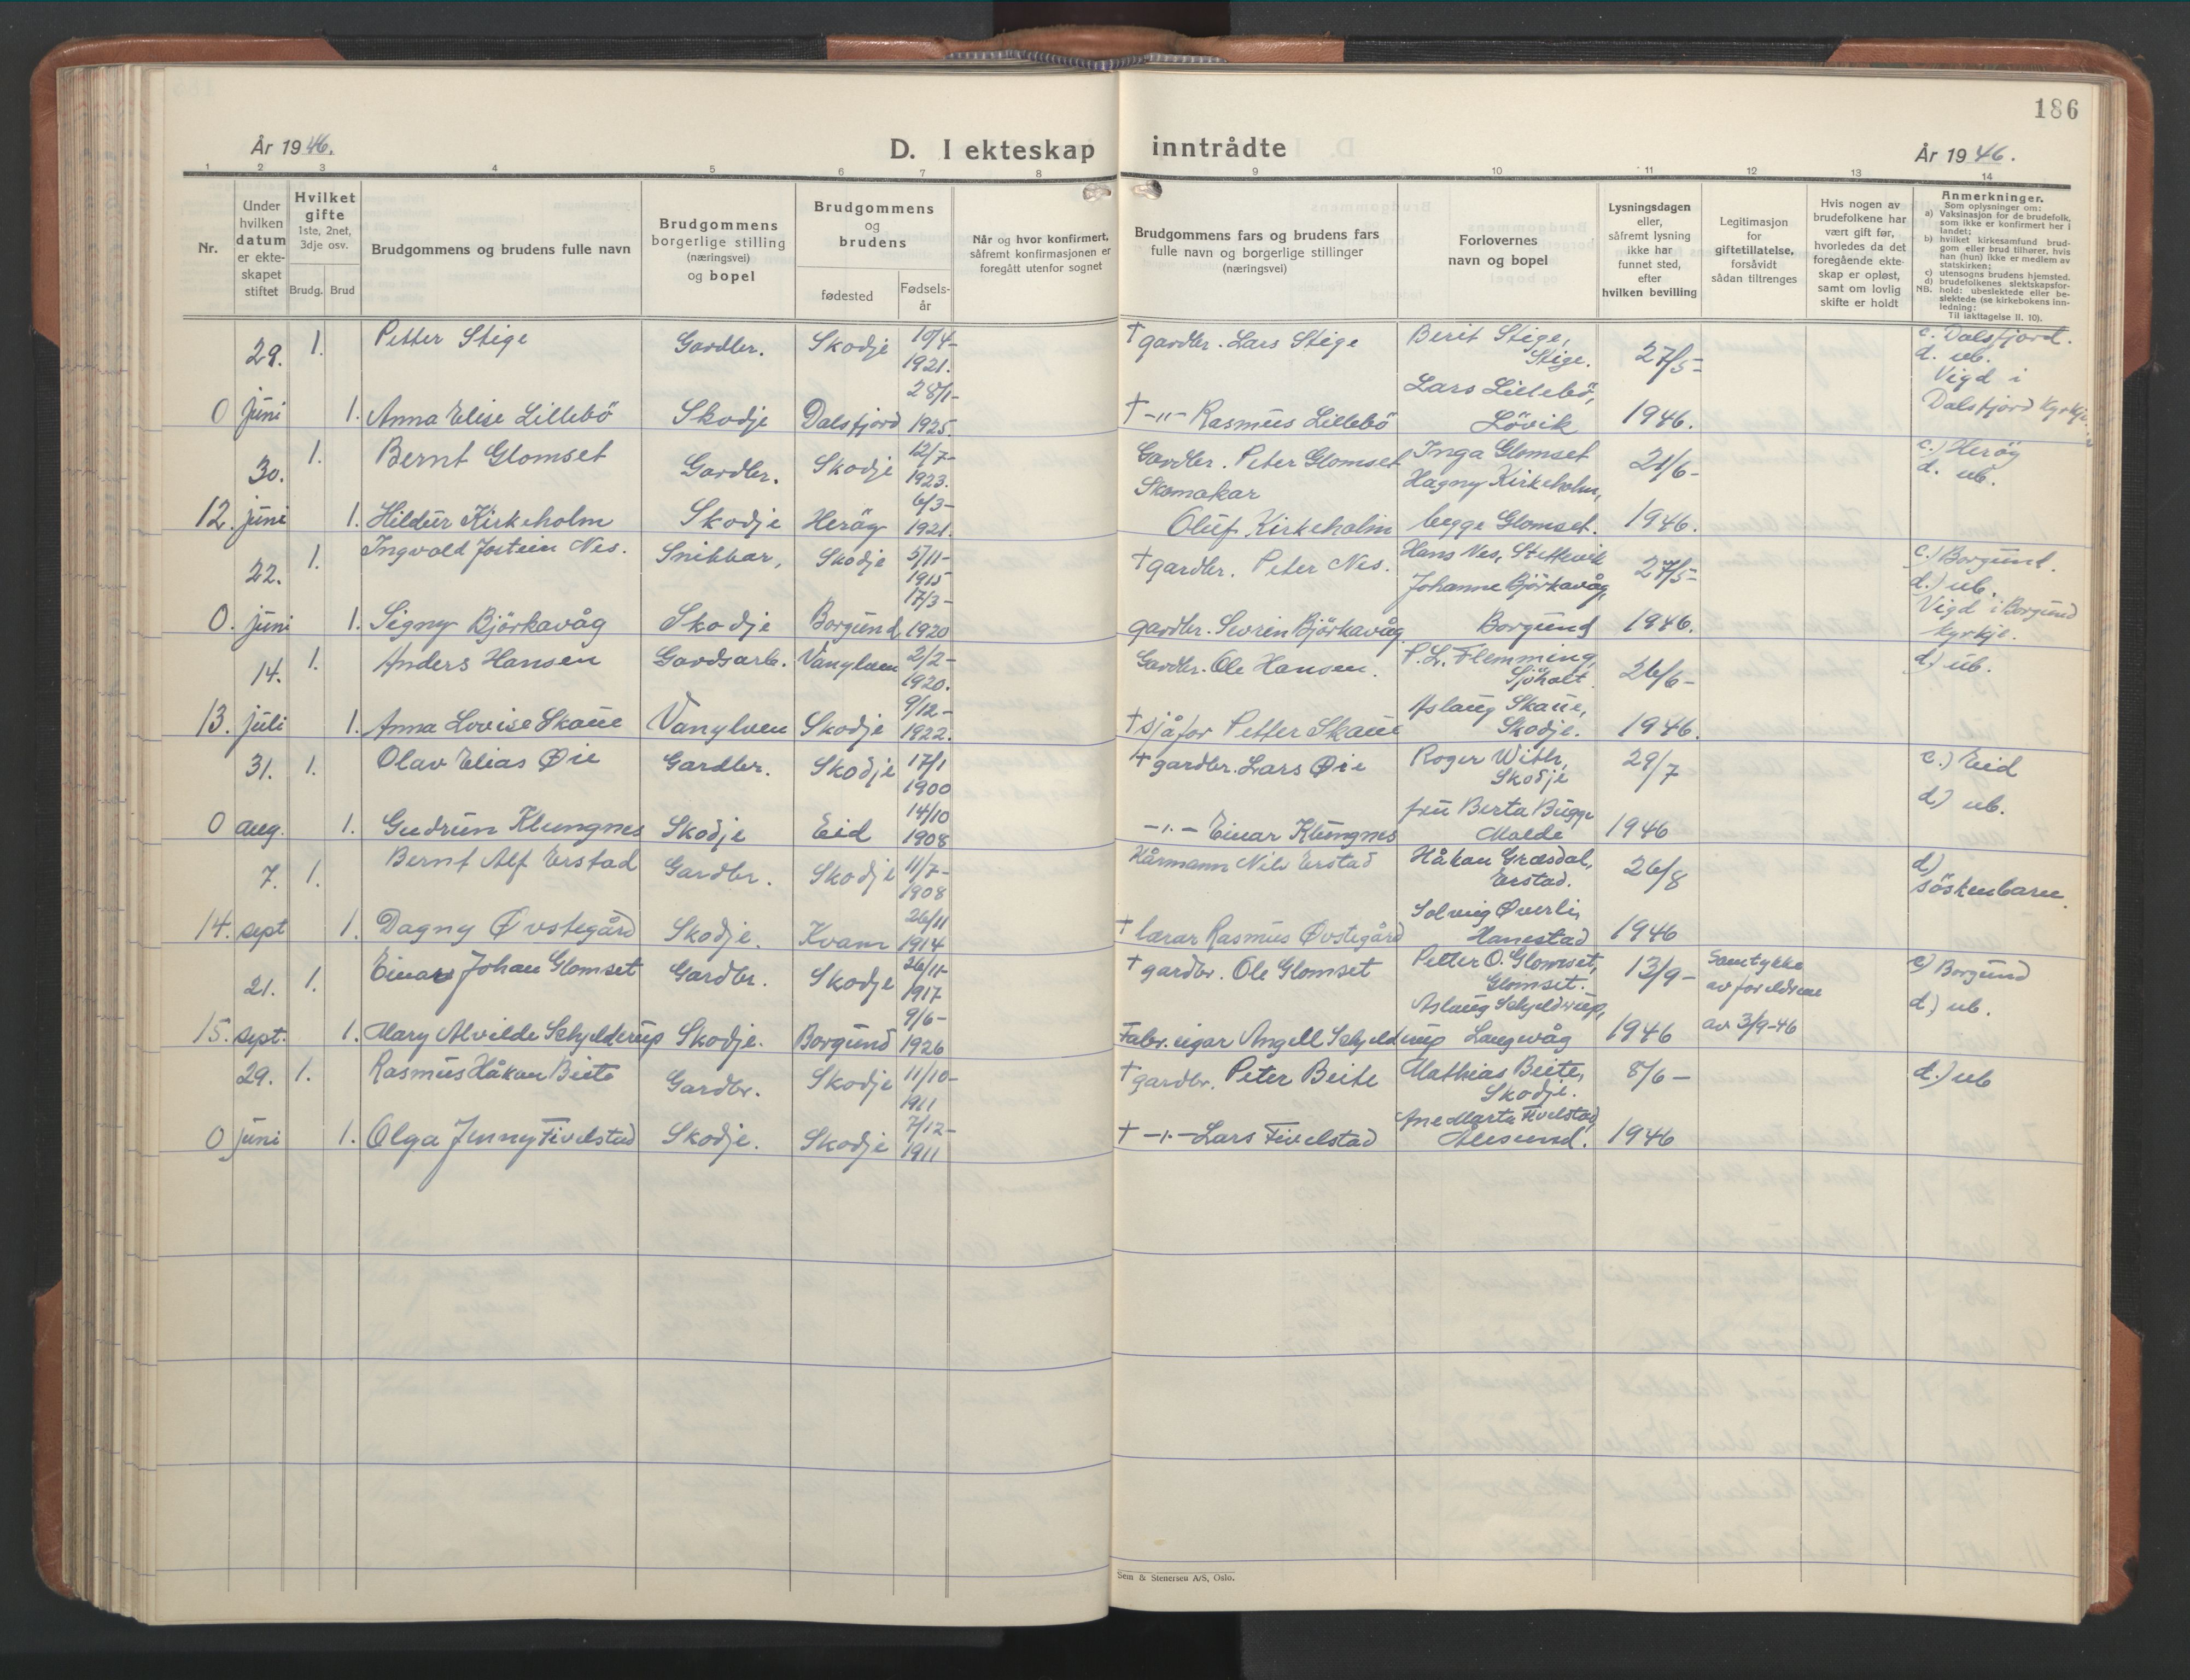 186
År 1946.
D. I ekteskap inntrådte
År 1946.
1 2 3 4 5 6 7 8 9 10 11 12 13 14
Nr.
Under hvilken datum er ekte- skapet stiftet
Hvilket gifte 1ste, 2net, 3dje osv.
Brudg. Brud
Brudgommens og brudens fulle navn
Brudgommens borgerlige stilling (næringsvei) og bopel
Brudgommens og brudens
fødested
Fødsels- år
Når og hvor konfirmert, såfremt konfirmasjonen er foregått utenfor sognet
Brudgommens fars og brudens fars fulle navn og borgerlige stillinger (næringsvei)
Forlovernes navn og bopel
Lysningsdagen eller, såfremt lysning ikke har funnet sted, efter hvilken bevilling
Legitimasjon for giftetillatelse, forsåvidt sådan tiltrenges
Hvis nogen av brudefolkene har vært gift før, hvorledes da det foregående ekte- skap er opløst, samt om lovlig skifte er holdt
Anmerkninger.
Som oplysninger om:
a) Vaksinasjon for de brudefolk, som ikke er konfirmert her i landet;
b) hvilket kirkesamfund brud- gom eller brud tilhører, hvis han (hun) ikke er medlem av statskirken;
c) utensogns brudens hjemsted.
d) brudefolkenes slektskapsfor- hold: ubeslektede eller be- slektede (se kirkebokens inn- ledning:
NB. Til iakttagelse II. 10).
29. 1. Petter Stige Gardbr. Skodje 10/4- 1921. † gardbr. Lars Stige Berit Stige, Stige. 27/5- c. Dalsfjord. d. ub. Vigd i
0 juni 1. Anna Elise Lillebö Skodje Dalsfjord 28/1- 1925. † -"- Rasmus Lillebö Lars Lillebö, Lövik 1946. Dalsfjord Kyrkje
30. 1. Bernt Glomset Gardbr. Skodje 12/7- 1923. Gardbr. Peter Glomset Inga Glomset 21/6- c.) Heröy d. ub.
12. juni 1. Hildur Kirkeholm Skodje Heröy 6/3- 1921. Skomakar Oluf Kirkeholm Hagny Kirkeholm, begge Glomset. 1946.
22. 1. Ingvald Jostein Nes. Snikkar, Skodje 5/11- 1915 † gardbr. Peter Nes. Hans Nes, Stettevik 27/5- c.) Borgund. d.) ub.
0. juni 1. Signy Björkavåg Skodje Borgund 17/3- 1920 gardbr. Sevrin Björkavåg. Johanne Björkavåg, Borgund 1946. Vigd i Borgund kyrkje.
14. 1. Anders Hansen Gardsarb. Vanylven 2/2- 1920. Gardbr. Ole Hansen. P. L. Flemming, Sjöholt 26/6- d.) ub.
13. juli 1. Anna Lovise Skaue Vanylven Skodje 9/12- 1922. † sjåfør Petter Skaue Aslaug Skaue, Skodje. 1946.
31. 1. Olav Elias Øie Gardbr. Skodje 17/1 1900 † gardbr. Lars Øie Roger With, Skodje 29/7 c.) Eid
0 aug. 1. Gudrun Klungnes Skodje Eid 14/10 1908 -"- Einar Klungnes fru Berta Bugge Molde 1946 d) ub.
7. 1. Bernt Alf Erstad Gardbr. Skodje 11/7- 1908 Kårmann Nils Erstad Håkan Græsdal, Erstad. 26/8 d) söskenbarn.
14. sept 1. Dagny Øvstegård Skodje. Kvam 26/11 1914 † lærar Rasmus Øvstegård Solveig Øverli, Hanestad 1946
21. 1. Einar Johan Glomset Gardbr. Skodje 26/11- 1917 † gardbr. Ole Glomset Petter O. Glomset, Glomset. 13/9- Samtykke av foreldrene c) Borgund
15. sept. 1. Mary Alvilde Schjelderup Skodje. Borgund 9/6- 1926 Fabr. eigar Angell Schjelderup Aslaug Schjelderup, Langevåg 1946 av 3/9-46 d) ub.
29. 1. Rasmus Håkan Beite Gardbr. Skodje 11/10- 1911 † gardbr. Peter Beite Mathias Beite, Skodje. 8/6- d.) ub
0 juni 1. Olga Jenny Fivelstad Skodje. Skodje 7/12- 1911 † -"- Lars Fivelstad Ane Marta Fivelstad Ålesund. 1946
Sem & Stenersen A/S, Oslo.